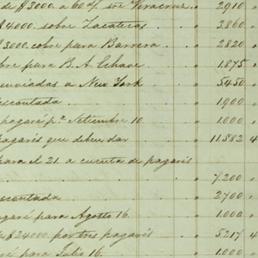 de $3000 a 60 d/ sre Veracruz " 2910
$4000 sobre Zacatecas " 3860
$3000 sobre para Barrera " 2820
obre para B. A. Echave " 1.875
enviadas a New York " 5450
escontada " 1900
pagaré pa Setiembre 10 " 1.000
pagarés que deben dar " 11.582 4
para el 21 a cuenta de pagarés
" 7.200
escontada " 2700
garé para Agosto 16 " 1.000
de $24000 por tres pagarés " 5217 4
é para Julio 16 " 1.000